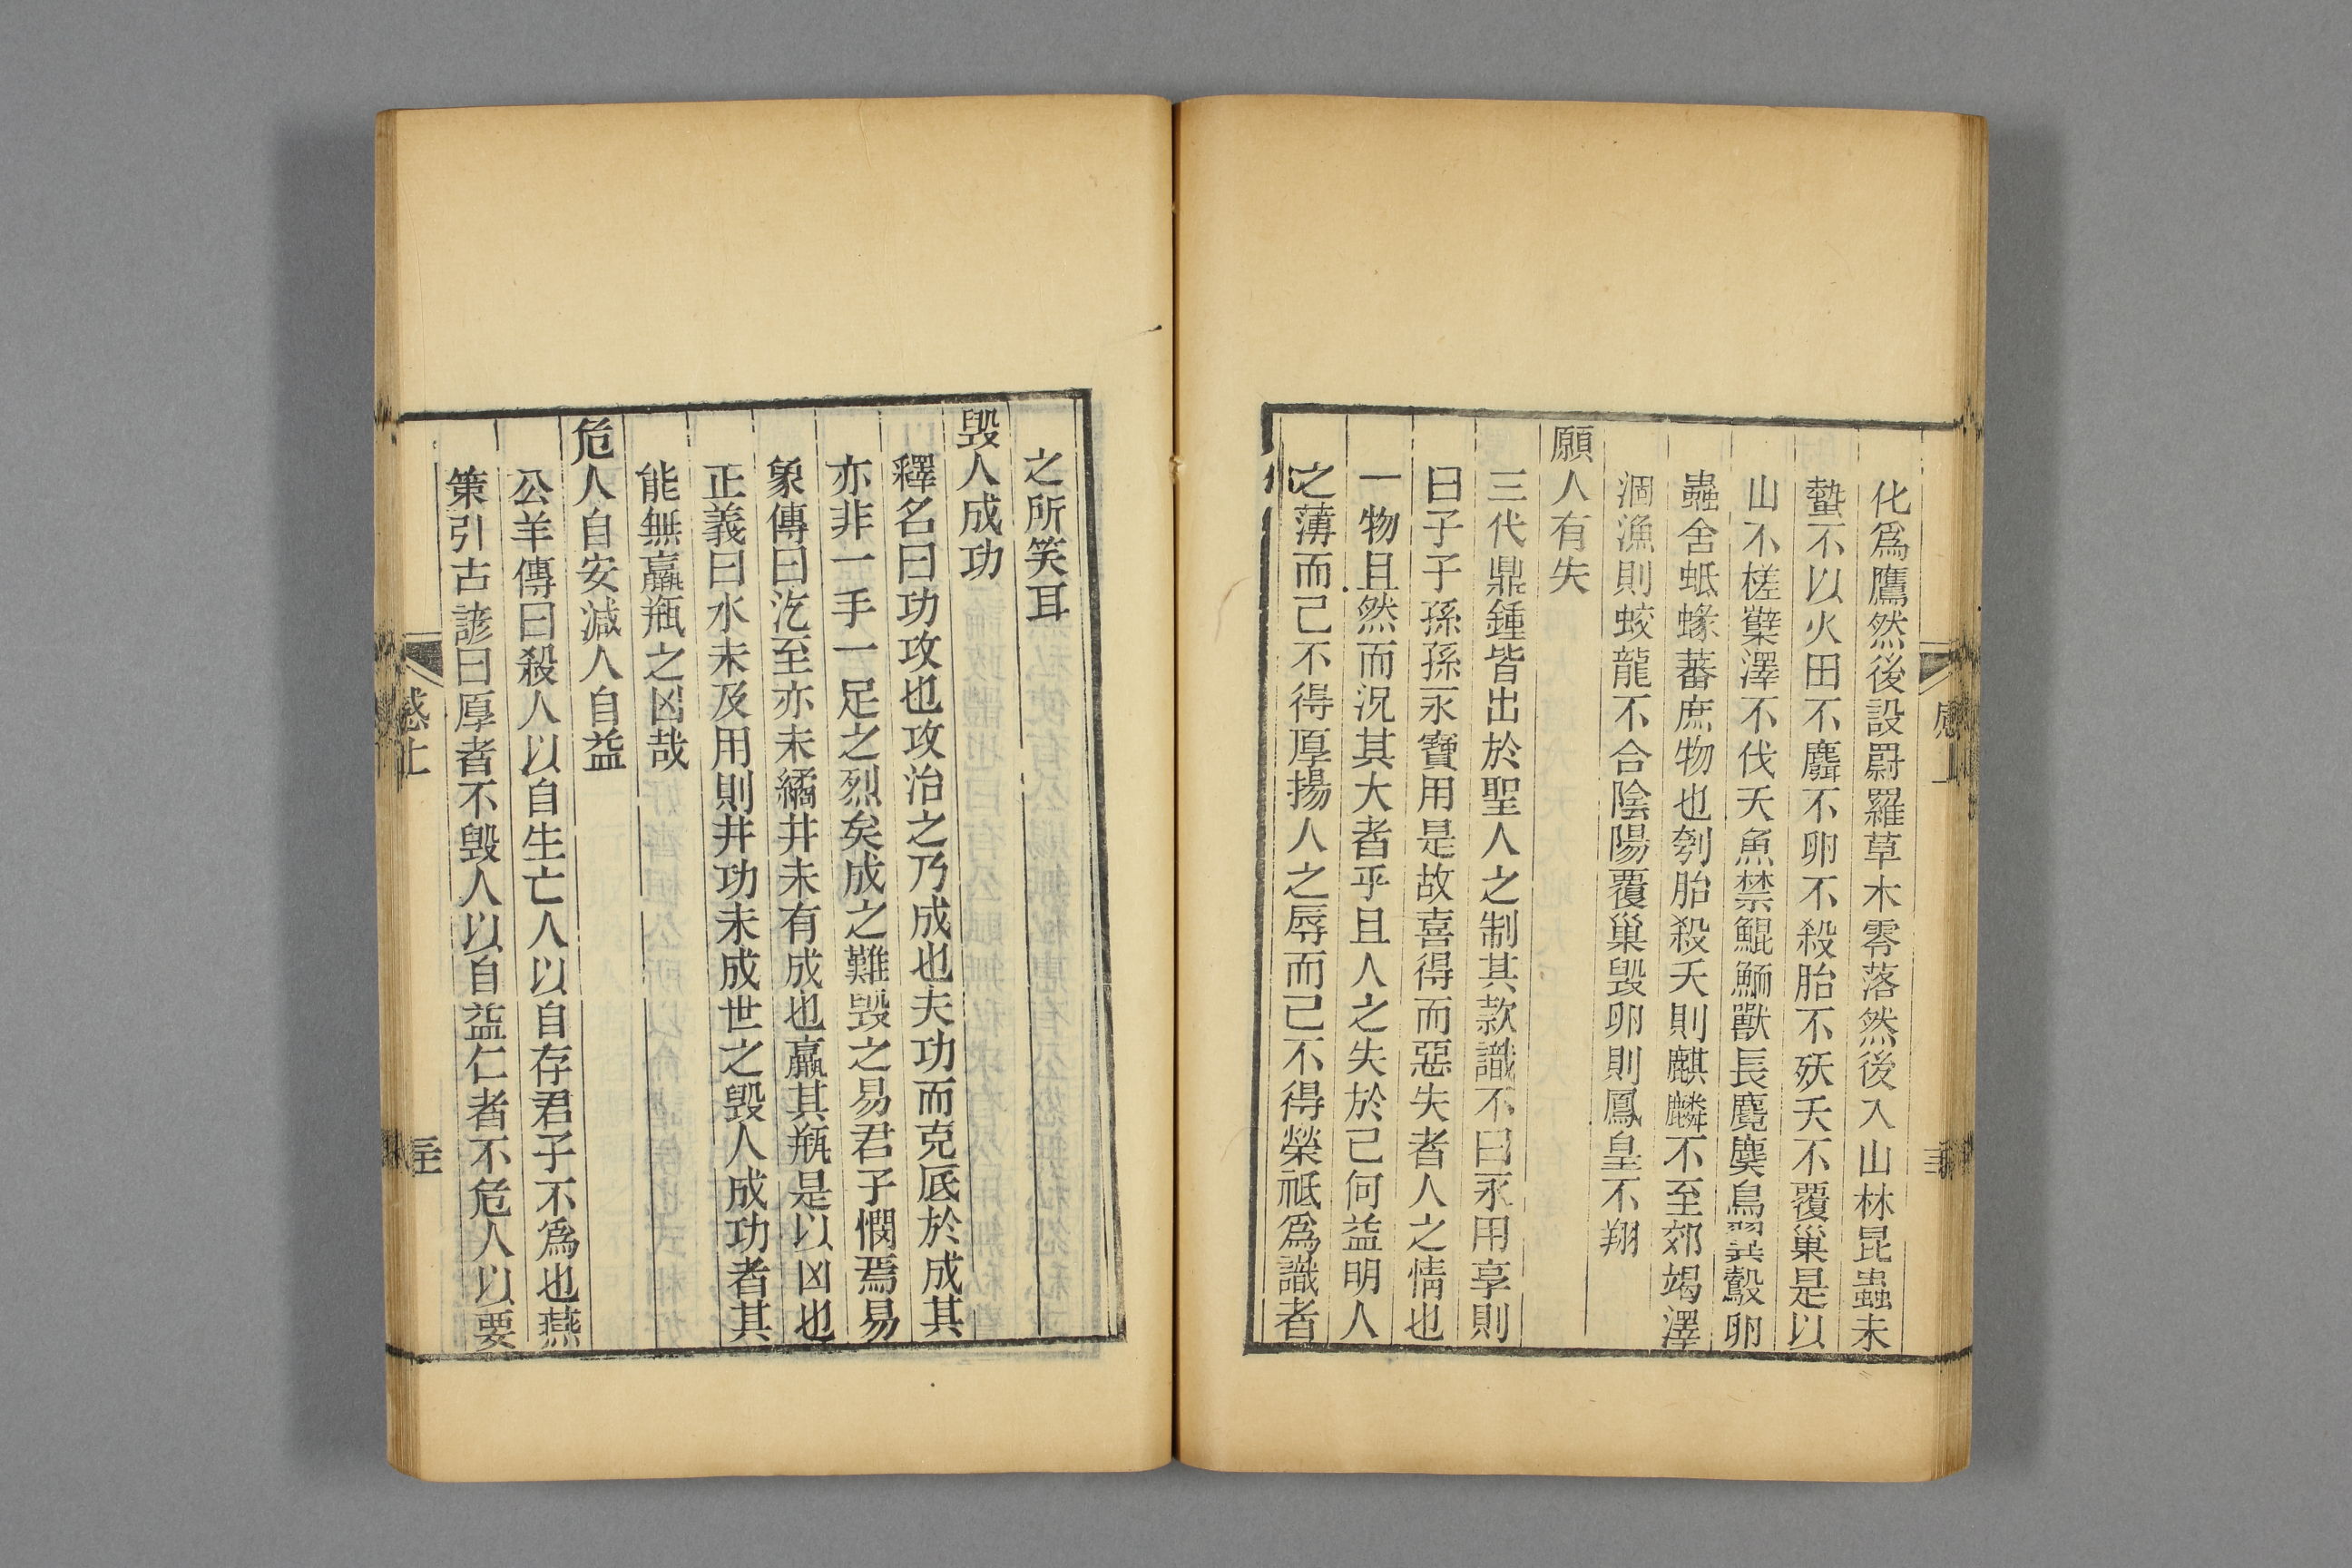 化爲鷹然後設罻羅草木零落然後入山林昆蟲未
蟄不以火田不麛不卵不殺胎不殀夭不覆巢是以
山不槎櫱澤不伐夭魚禁鯤鮞獸長麑麌鳥翼鷇卵
蟲舍蚳蝝蕃庶物也刳胎殺夭則麒麟不至郊竭澤
涸漁則蛟龍不合陰陽覆巢毁卵則鳳皇不翔
願人有失
三代鼎鍾皆出於聖人之制其款識不曰永用享則
曰子子孫孫永寶用是故喜得而惡失者人之情也
一物且然而況其大者乎且人之失於己何益明人
之薄而己不得厚揚人之辱而己不得榮祗爲識者
之所笑耳
毁人成功
釋名曰功攻也攻治之乃成也夫功而克厎於成其
亦非一手一足之烈矣成之難毁之易君子憫焉易
象傳曰汔至亦未繘井未有成也羸其瓶是以凶也
正義曰水未及用則井功未成世之毁人成功者其
能無羸瓶之凶哉
危人自安減人自益
公羊傳曰殺人以自生亡人以自存君子不爲也燕
策引古諺曰厚者不毁人以自益仁者不危人以要
感上